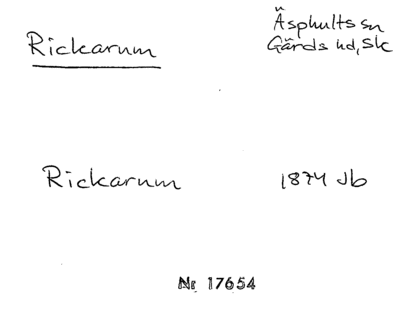 Rickarum
Äsphults sn
Gärds hd, Sk
Rickarum
1874 Jb
Nr 17654